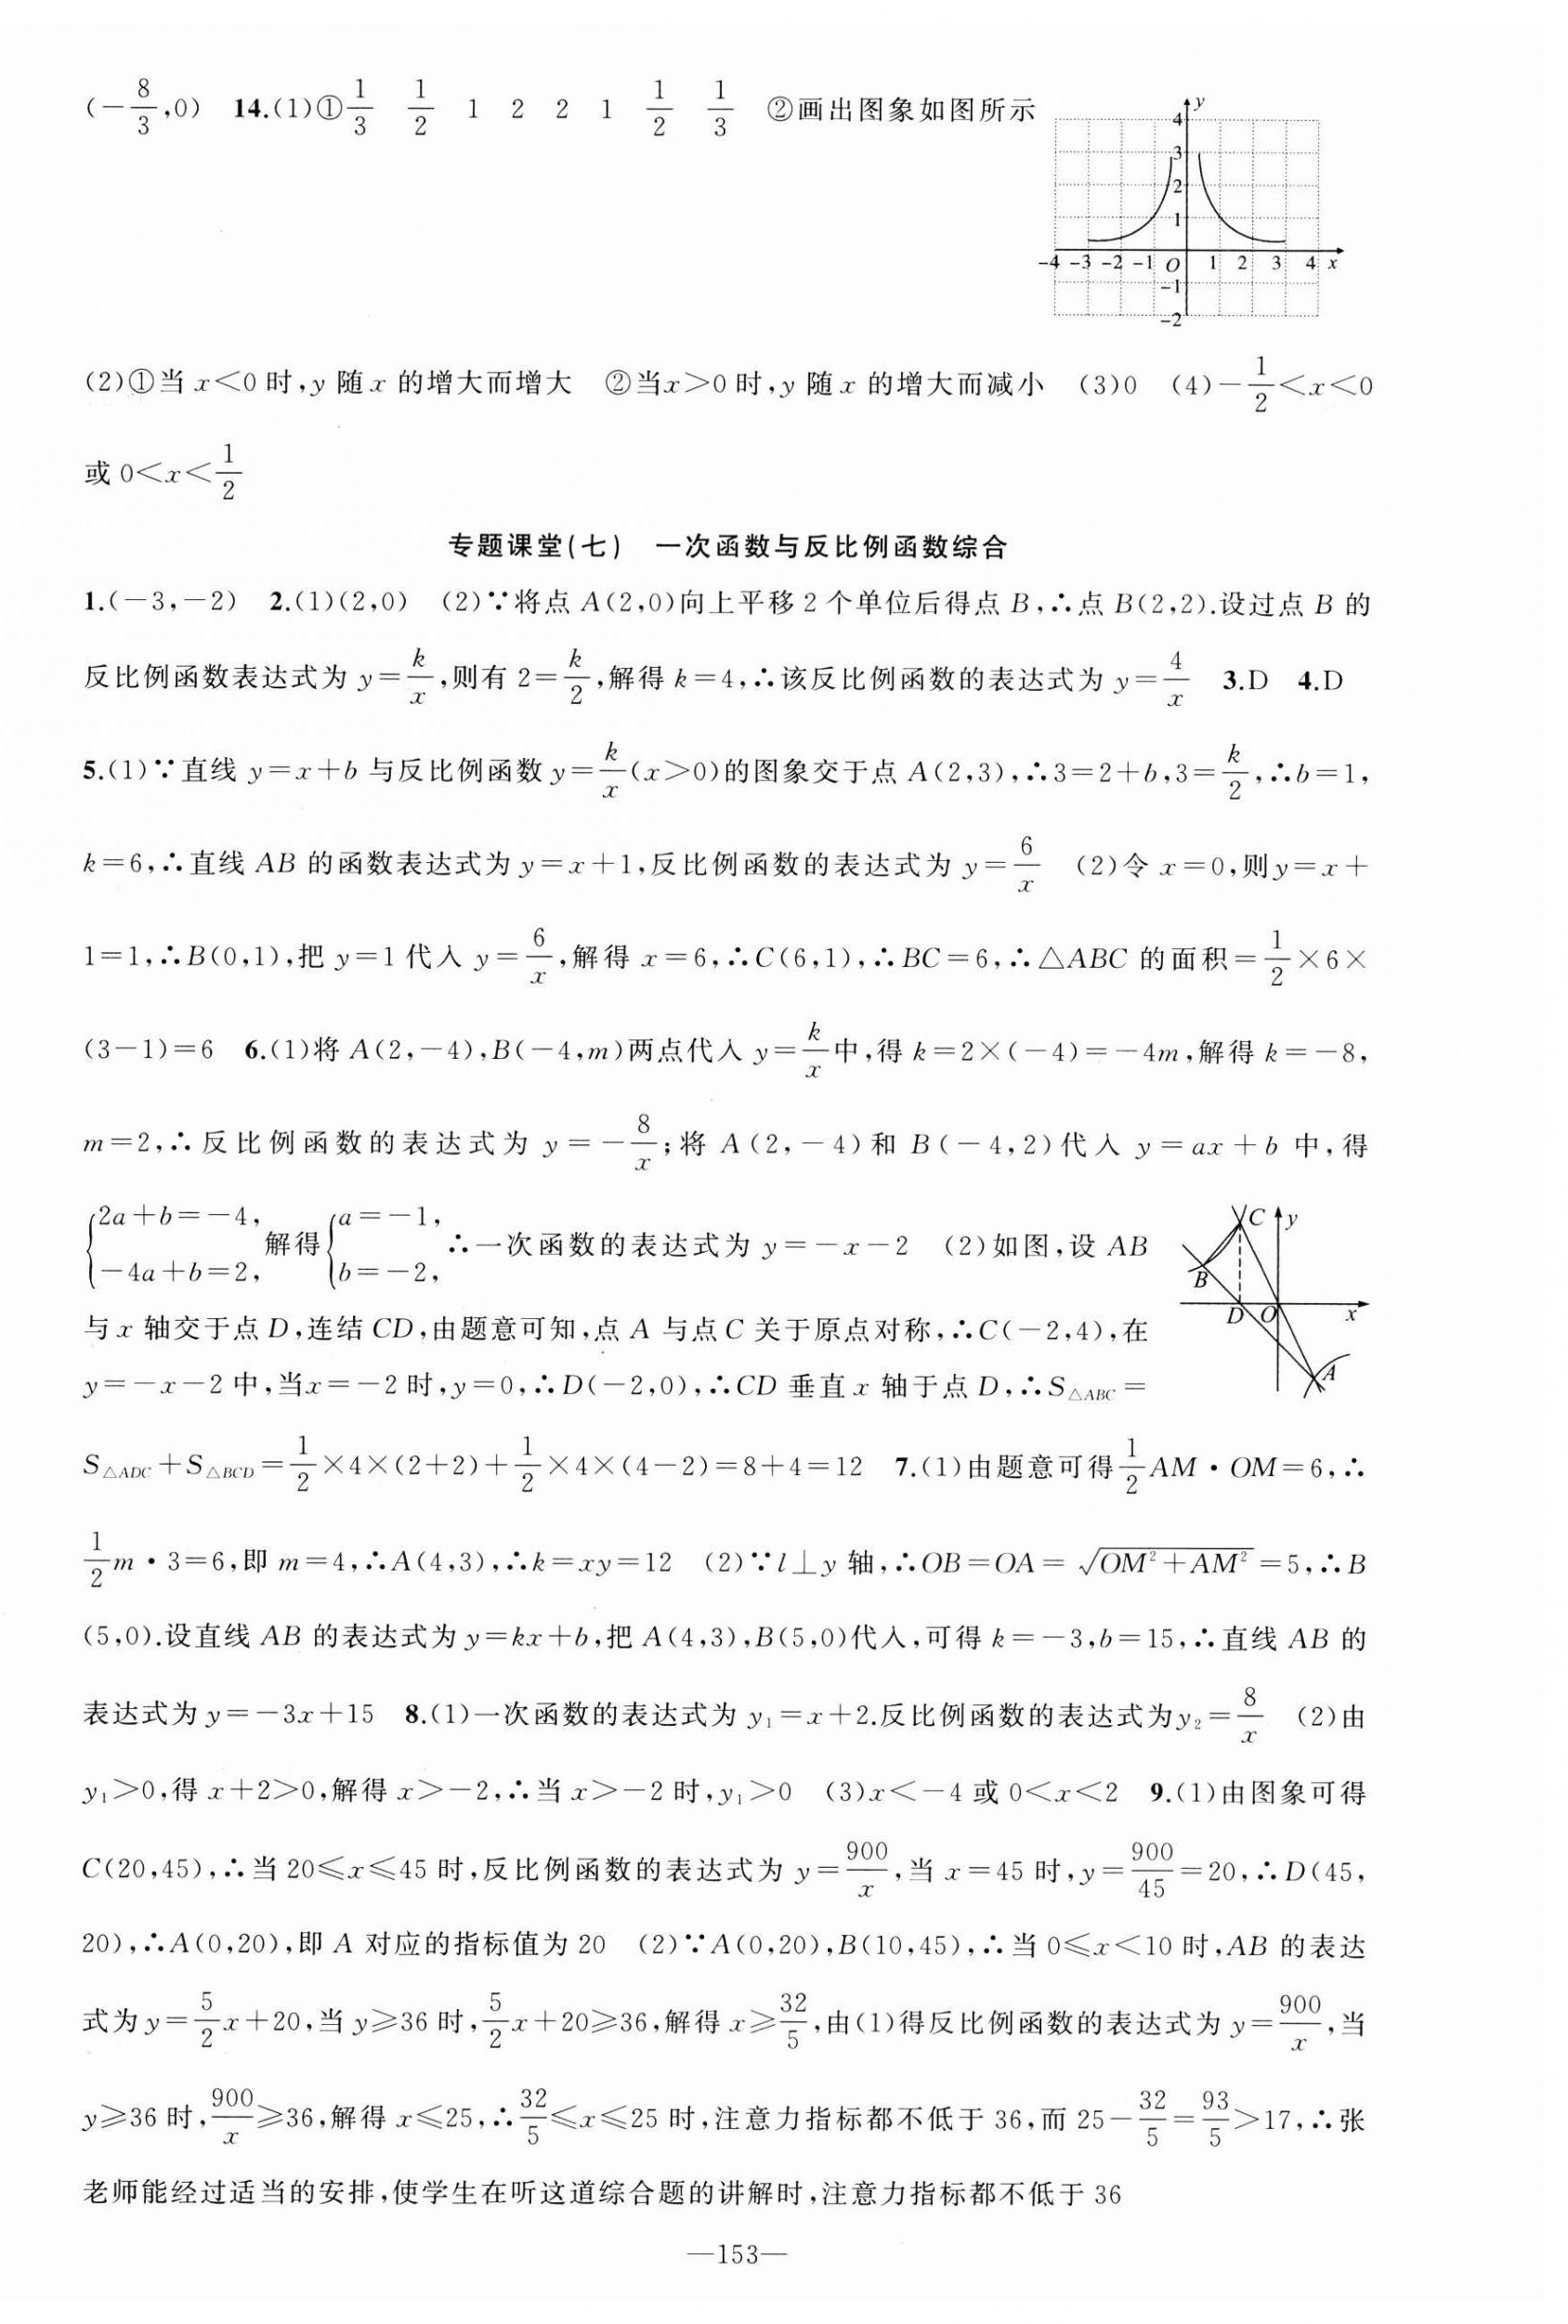 (－8/3,0) 14.(1)①1/3 1/2 1 2 2 1 1/2 1/3 ②画出图象如图所示
y
4
3
2
1
-4 -3 -2 -1 O 1 2 3 4 x
-1
-2
(2)①当 x＜0 时,y 随 x 的增大而增大 ②当x＞0 时,y 随 x 的增大而减小 (3)0 (4)－1/2＜x＜0
或 0＜x＜1/2
专题课堂(七) 一次函数与反比例函数综合
1.(－3,－2) 2.(1)(2,0) (2)∵将点 A(2,0)向上平移 2 个单位后得点 B,∴点 B(2,2).设过点 B 的
反比例函数表达式为 y＝k/x,则有 2＝k/2,解得 k＝4,∴该反比例函数的表达式为 y＝4/x 3.D 4.D
5.(1)∵直线 y＝x＋b 与反比例函数 y＝k/x(x＞0)的图象交于点 A(2,3),∴3＝2＋b,3＝k/2,∴b＝1,
k＝6,∴直线 AB 的函数表达式为 y＝x＋1,反比例函数的表达式为 y＝6/x (2)令 x＝0,则y＝x＋
1＝1,∴B(0,1),把 y＝1 代入 y＝6/x,解得 x＝6,∴C(6,1),∴BC＝6,∴△ABC 的面积＝1/2×6×
(3－1)＝6 6.(1)将 A(2,－4),B(－4,m)两点代入 y＝k/x中,得 k＝2×(－4)＝－4m,解得 k＝－8,
m＝2,∴反比例函数的表达式为 y＝－8/x;将 A(2,－4)和 B(－4,2)代入 y＝ax＋b 中,得
{2a＋b＝－4, －4a＋b＝2, 解得{a＝－1, b＝－2, ∴一次函数的表达式为 y＝－x－2 (2)如图,设 AB
C y
B
D O x
A
与 x 轴交于点 D,连结 CD,由题意可知,点 A 与点 C 关于原点对称,∴C(－2,4),在
y＝－x－2 中,当x＝－2 时,y＝0,∴D(－2,0),∴CD 垂直 x 轴于点 D,∴S△ABC＝
S△ADC＋S△BCD＝1/2×4×(2＋2)＋1/2×4×(4－2)＝8＋4＝12 7.(1)由题意可得1/2AM·OM＝6,∴
1/2m·3＝6,即 m＝4,∴A(4,3),∴k＝xy＝12 (2)∵l⊥y 轴,∴OB＝OA＝√(OM²＋AM²)＝5,∴B
(5,0).设直线 AB 的表达式为 y＝kx＋b,把 A(4,3),B(5,0)代入,可得 k＝－3,b＝15,∴直线 AB 的
表达式为 y＝－3x＋15 8.(1)一次函数的表达式为 y₁＝x＋2.反比例函数的表达式为y₂＝8/x (2)由
y₁＞0,得 x＋2＞0,解得 x＞－2,∴当 x＞－2 时,y₁＞0 (3)x＜－4 或 0＜x＜2 9.(1)由图象可得
C(20,45),∴当 20≤x≤45 时,反比例函数的表达式为 y＝900/x,当 x＝45 时,y＝900/45＝20,∴D(45,
20),∴A(0,20),即 A 对应的指标值为 20 (2)∵A(0,20),B(10,45),∴当 0≤x＜10 时,AB 的表达
式为 y＝5/2x＋20,当 y≥36 时,5/2x＋20≥36,解得 x≥32/5,由(1)得反比例函数的表达式为 y＝900/x,当
y≥36 时,900/x≥36,解得 x≤25,∴32/5≤x≤25 时,注意力指标都不低于 36,而 25－32/5＝93/5＞17,∴张
老师能经过适当的安排,使学生在听这道综合题的讲解时,注意力指标都不低于 36
—153—